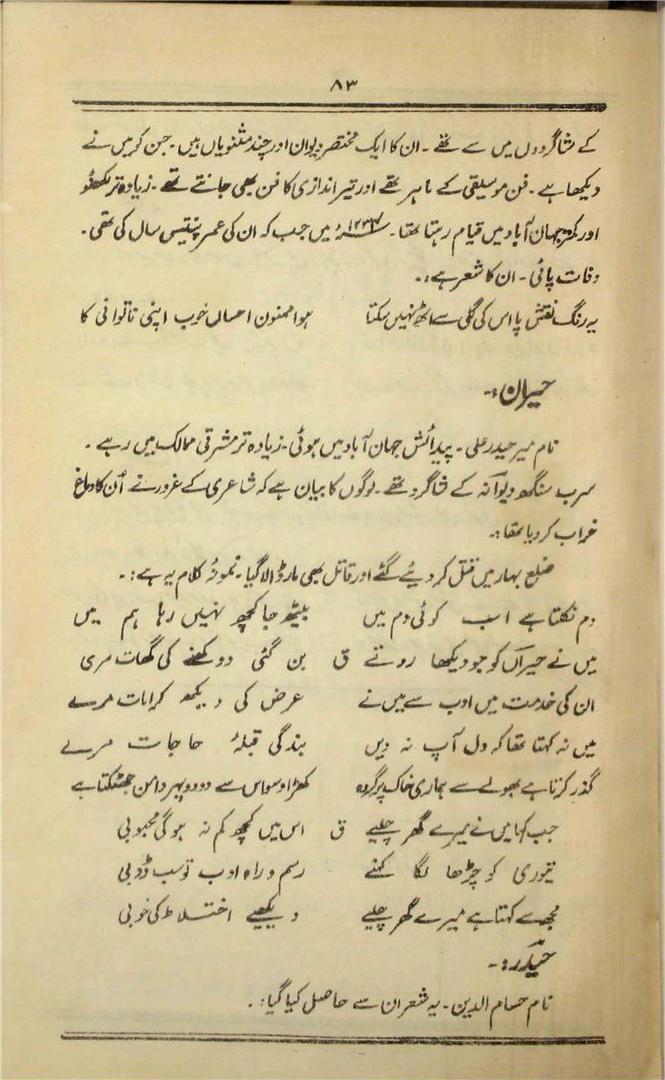 ۸۳
کے شاگردوں میں سے تھے۔ ان کا ایک مختصر دیوان اور چند مثنویاں ہیں۔ جن کو میں نے
دیکھا ہے۔ فن موسیقی کے ماہر تھے اور تیر اندازی کا فن بھی جانتے تھے۔ زیادہ تر لکھنؤ
اور کمرۂ جہان آباد میں قیام رہتا تھا۔ میں جب کہ ان کی عمر پنتیس سال کی تھی۔
وفات پائی۔ ان کا شعر ہے:۔
یہ رنگ نقش پا اس کی گلی سے اٹھ نہیں سکتا ہوا ممنون احساں خوب اپنی ناتوانی کا
حیران:۔
نام میر حیدر علی۔ پیدائش جہان آباد میں ہوئی۔ زیادہ تر مشرقی ممالک میں رہے۔
سرب سنگھ دیوانہ کے شاگرد تھے۔ لوگوں کا بیان ہے کہ شاعری کے غرور نے اُن کا دماغ
خراب کر دیا تھا:۔
ضلع بہار میں قتل کر دیئے گئے اور قاتل بھی مار ڈالا گیا۔ نمونۂ کلام یہ ہے:۔
دم نکلتا ہے اب کوئی دم میں بیٹھ جا کچھ نہیں رہا ہم میں
میں نے حیراں کو جو دیکھا روتے ق بن گئی دوکھنے کی گھات مری
ان کی خدمت میں ادب سے میں نے عرض کی دیکھ کرامات مرے
میں نہ کہتا تھا کہ دل آپ نہ دیں بندگی قبلۂ حاجات مرے
گذر کرتا ہے بھولے سے ہماری خاک پر گروہ کھڑا وسواس سے دو دو پہر دامن جھٹکتا ہے
جب کہا میں نے میرے گھر چلیے ق اس میں کچھ کم نہ ہوگی محبوبی
تیوری کو چڑھا لگا کہنے رسم و راہ ادب تو سب ڈوبی
مجھ سے کہتا ہے میرے گھر چلیے دیکھیے اختلاط کی خوبی
حیدر:۔
نام حسام الدین۔ یہ شعر ان سے حاصل کیا گیا:۔